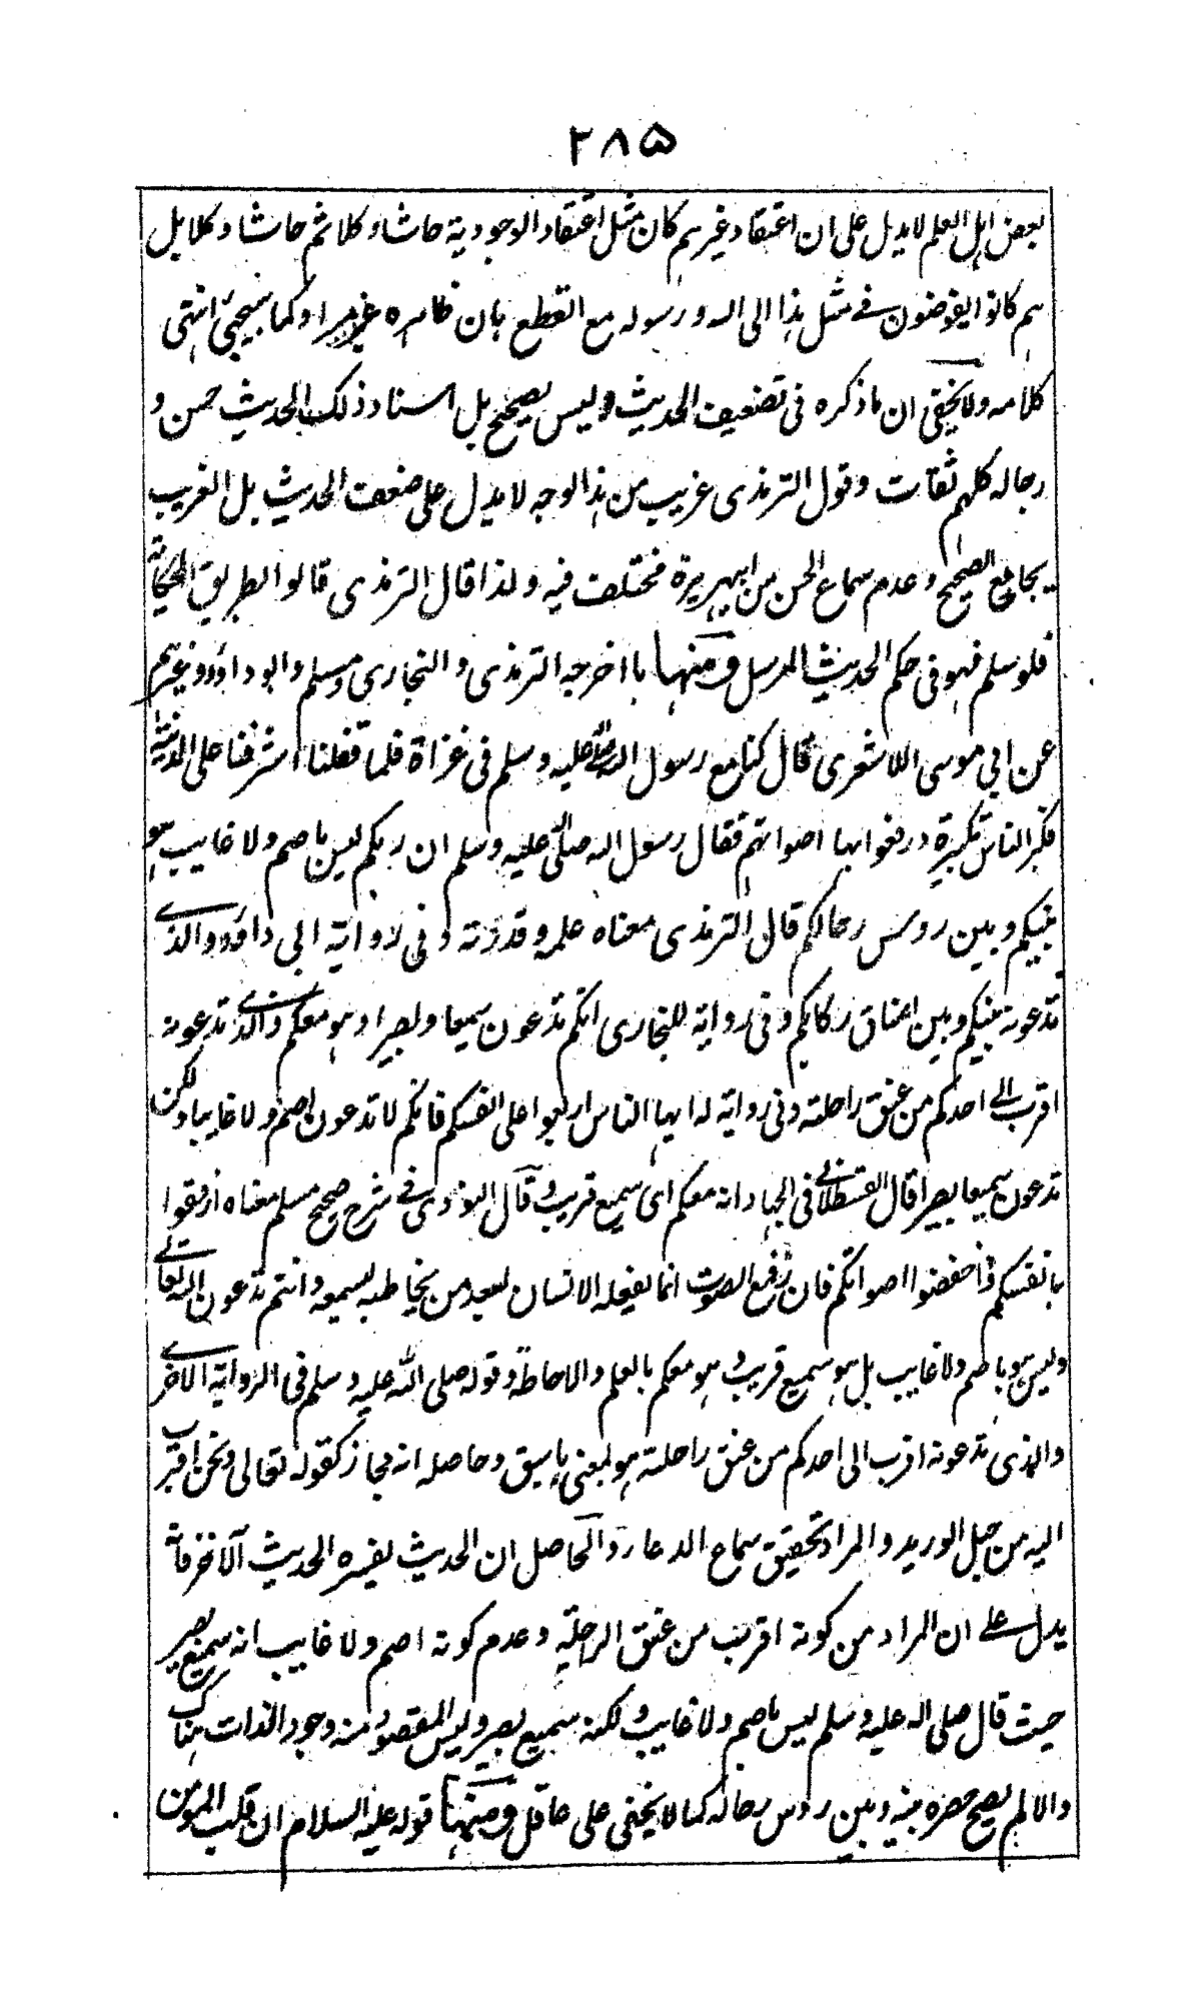 ۲۸۵
بعض اهل العلم لا يدل على ان اعتقاد غيرهم كان مثل اعتقاد الوجودية حاشا وكلا ثم حاشا وكلا بل
هم كانوا يفوضون في مثل هذا الى الله ورسوله مع القطع بان ظاهره غير مراد كما سيجيئ انتهى
كلامه ولا يخفى ان ما ذكره فى تضعيف الحديث وليس بصحيح بل اسناد ذلك الحديث حسن و
رجاله كلهم ثقات وقول الترمذى غريب من هذا الوجه لا يدل على ضعف الحديث بل الغريب
يجامع الصحيح وعدم سماع الحسن من ابيهريرة مختلف فيه ولذا قال الترمذى قالوا بطريق الحكاية
فلو سلم فهو فى حكم الحديث المرسل ومنها ما اخرجه الترمذى والبخارى ومسلم وابو داؤد وغيرهم
عن ابي موسى الاشعرى قال كنا مع رسول الله صلى الله عليه وسلم فى غزاة فلما قفلنا اشرفنا على المدينة
فكبر الناس تكبيرة ورفعوا بها اصواتهم فقال رسول الله صلى الله عليه وسلم ان ربكم ليس باصم ولا غايب هو
بينكم وبين روس رحالكم قال الترمذى معناه علمه وقدرته وفى رواية ابى داؤد والذے
تدعونه بينكم وبين اعناق ركابكم وفى رواية للبخارى انكم تدعون سميعا وبصيرا وهو معكم والذے تدعونه
اقرب الى احدكم من عنق راحلته وفى رواية له ايها الناس اربعوا على انفسكم فانكم لا تدعون اصم ولا غايبا ولكن
تدعون سميعا بصيرا قال القسطلانى فى الجهاد انه معكم اى سميع قريب وقال النووى فے شرح صحيح مسلم معناه ارفقوا
بانفسكم واخفضوا اصواتكم فان رفع الصوت انما يفعله الانسان لبعد من يخاطبه ليسمعه وانتم تدعون الله تعالے
وليس هو باصم ولا غايب بل هو سميع قريب وهو معكم بالعلم والاحاطة وقوله صلى الله عليه وسلم فى الرواية الاخرے
والذى تدعونه اقرب الى احدكم من عنق راحلته هو بمعنى ما سبق وحاصله انه مجاز كقوله تعالى ونحن اقرب
اليه من حبل الوريد والمراد تحقيق سماع الدعاء والحاصل ان الحديث يفسره الحديث الآخر فانه
يدل علے ان المراد من كونه اقرب من عنق الراحلة وعدم كونه اصم ولا غايب انه سميع بصير
حيث قال صلى الله عليه وسلم ليس باصم ولا غايب ولكنه سميع بصير وليس المقصود منه وجود الذات هناك
والا لم يصح حصره بينه وبين روس رحاله كما لا يخفى على عاقل ومنها قوله عليه السلام ان قلب المومن